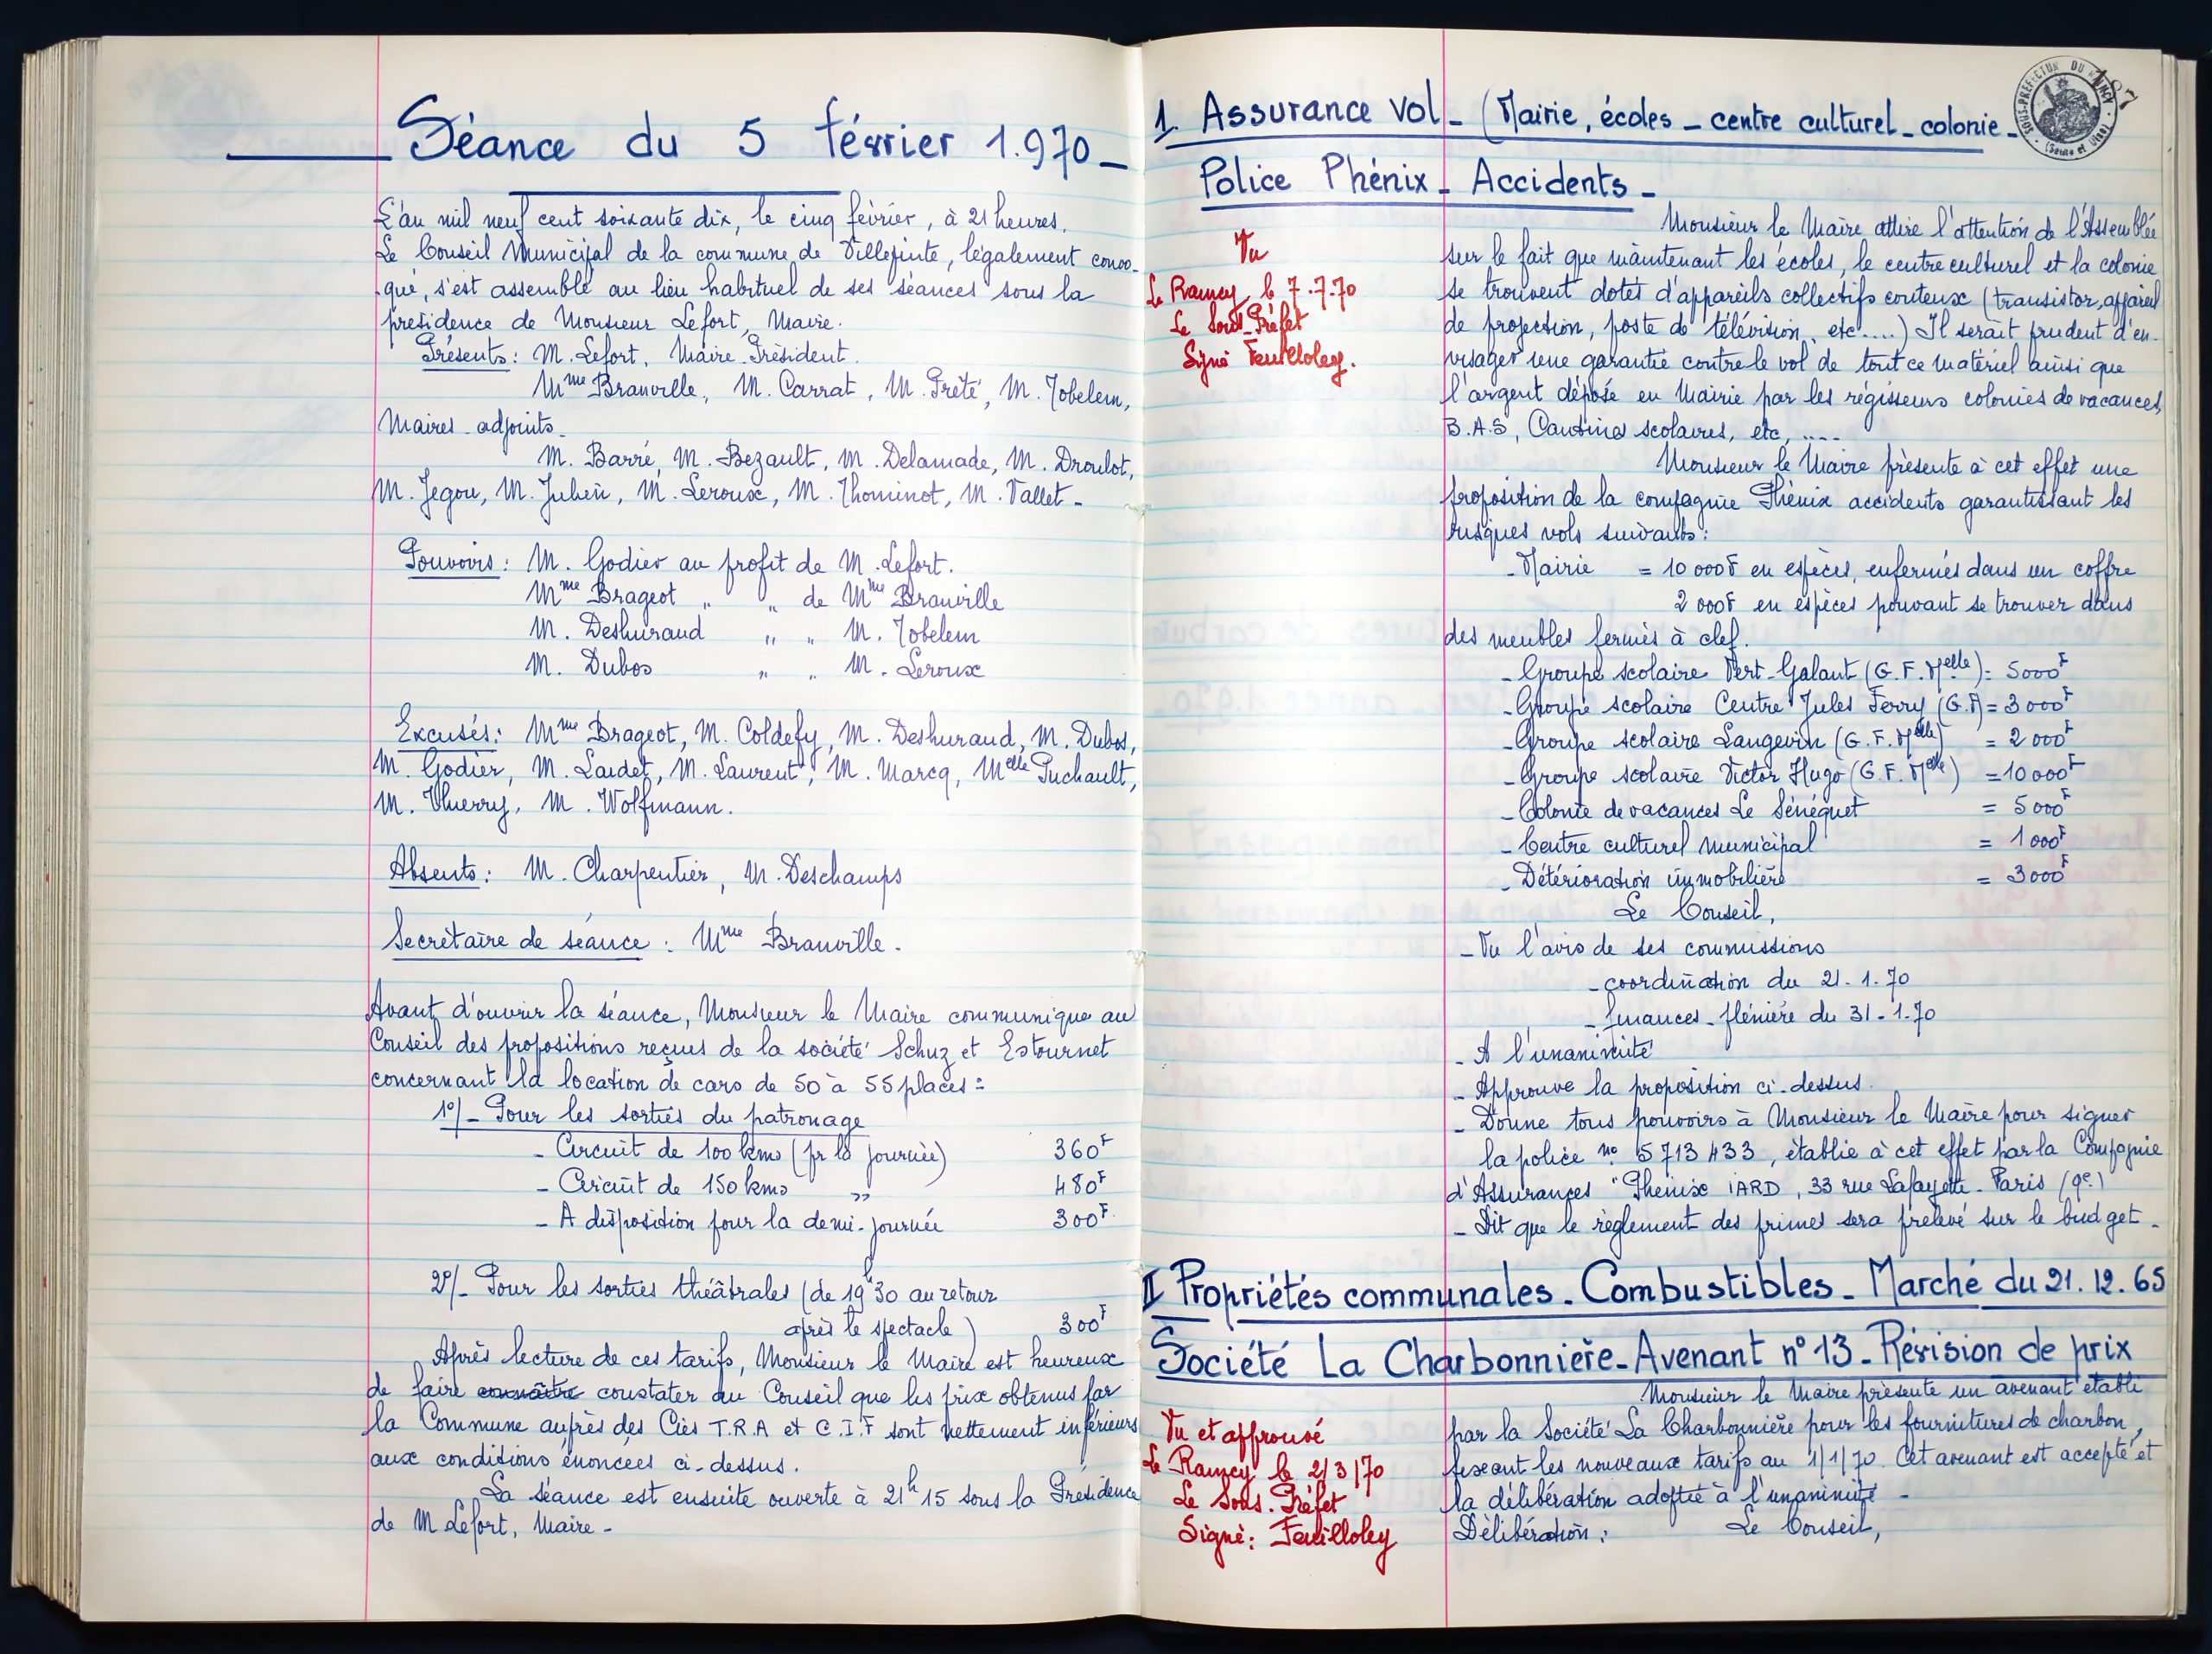 Séance du 5 février 1.970_
L'an mil neuf cent soixante dix, le cinq février, à 21 heures.
Le Conseil Municipal de la commune de Villepinte, légalement convo_
qué, s'est assemblé au lieu habituel de ses séances sous la
présidence de Monsieur Lefort, Maire.
Présents : M. Lefort, Maire_Président.
Mme Branville, M. Carrat, M. Prêté, M. Tobelem,
Maires_adjoints_
M. Barré, M. Bezault, M. Delamade, M. Droulot,
M. Jegou, M. Julien, M. Leroux, M. Thominot, M. Vallet_
Pouvoirs : M. Godier au profit de M. Lefort.
Mme Brageot " " de Mme Branville
M. Deshuraud " " M. Tobelem
M. Dubos " " M. Leroux
Excusés : Mme Brageot, M. Coldefy, M. Deshuraud, M. Dubos,
M. Godier, M. Lardet, M. Laurent, M. Marcq, Melle Puchault,
M. Thierry, M. Wolfmann.
Absents : M. Charpentier, M. Deschamps
Secrétaire de séance : Mme Branville.
Avant d'ouvrir la séance, Monsieur le Maire communique au
Conseil des propositions reçues de la société Schuz et Estournet
concernant la location de cars de 50 à 55 places :
1°/_ Pour les sorties du patronage
_ Circuit de 100 kms (pr la journée) 360F
_ Circuit de 150 kms " 480F
_ A disposition pour la demi-journée 300F
2°/_ Pour les sorties théâtrales (de 19h30 au retour
après le spectacle) 300F
Après lecture de ces tarifs, Monsieur le Maire est heureux
de faire connaître constater au Conseil que les prix obtenus par
la Commune auprès des Ciés T.R.A et C.I.F sont nettement inférieurs
aux conditions énoncées ci-dessus.
La séance est ensuite ouverte à 21h15 sous la Présidence
de M Lefort, Maire_
187
SOUS-PREFECTURE DU RAINCY
(Seine et Oise)
1. Assurance Vol_ (Mairie, écoles_centre culturel_colonie_
Police Phénix_Accidents_
Vu
Le Raincy le 7.7.70
Le Sous_Préfet
Signé Feuilloley.
Monsieur le Maire attire l'attention de l'Assemblée
sur le fait que maintenant les écoles, le centre culturel et la colonie
se trouvent dotés d'appareils collectifs couteux (transistor, appareil
de projection, poste de télévision, etc....) Il serait prudent d'en_
visager une garantie contre le vol de tout ce matériel ainsi que
l'argent déposé en Mairie par les régisseurs colonies de vacances,
B.A.S, Cantines scolaires, etc, ....
Monsieur le Maire présente à cet effet une
proposition de la compagnie Phénix accidents garantissant les
risques vols suivants :
_ Mairie = 10 000F en espèces, enfermés dans un coffre
2 000F en espèces pouvant se trouver dans
des meubles fermés à clef.
_ Groupe scolaire Vert-Galant (G.F.Melle) = 5000F
_ Groupe scolaire Centre Jules Ferry (G.F) = 3000F
_ Groupe scolaire Langevin (G.F.Melle) = 2000F
_ Groupe scolaire Victor Hugo (G.F.Melle) = 10000F
_ Colonie de vacances Le Sénéquet = 5000F
_ Centre culturel municipal = 1000F
_ Détérioration immobilière = 3000F
Le Conseil,
_ Vu l'avis de ses commissions
_ coordination du 21.1.70
_ finances_plénière du 31.1.70
_ A l'unanimité
_ Approuve la proposition ci-dessus.
_ Donne tous pouvoirs à Monsieur le Maire pour signer
la police n° 5 713 433, établie à cet effet par la Compagnie
d'Assurances "Phénix IARD, 33 rue Lafayette_Paris (9e)
_ Dit que le règlement des primes sera prélevé sur le budget_
II Propriétés communales_Combustibles_Marché du 21.12.65
Société La Charbonnière_Avenant n°13_Révision de prix
Vu et approuvé
Le Raincy le 2/3/70
Le Sous-Préfet
Signé : Feuilloley
Monsieur le Maire présente un avenant établi
par la Société La Charbonnière pour les fournitures de charbon,
fixant les nouveaux tarifs au 1/1/70. Cet avenant est accepté et
la délibération adoptée à l'unanimité_
Délibération : Le Conseil,